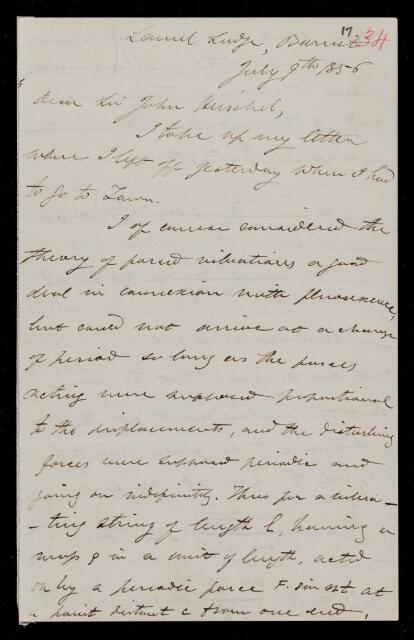 17
34
Laurel Lodge, Barnet
July 9th 1856
Dear Sir John Herschel,
I take up my letter
where I left off yesterday when I had
to go to Town.
I of course considered the
theory of forced vibrations a good
deal in connexion with fluorescence,
but could not arrive at a change
of period so long as the forces
acting were supposed proportional
to the displacements, and the disturbing
forces were supposed periodic and
going on indefinitely. Thus for a vibra-
-ting string of length l, having a
mass ρ in a unit of length, acted
on by a periodic force F. sin nt at
a point distant c from one end,